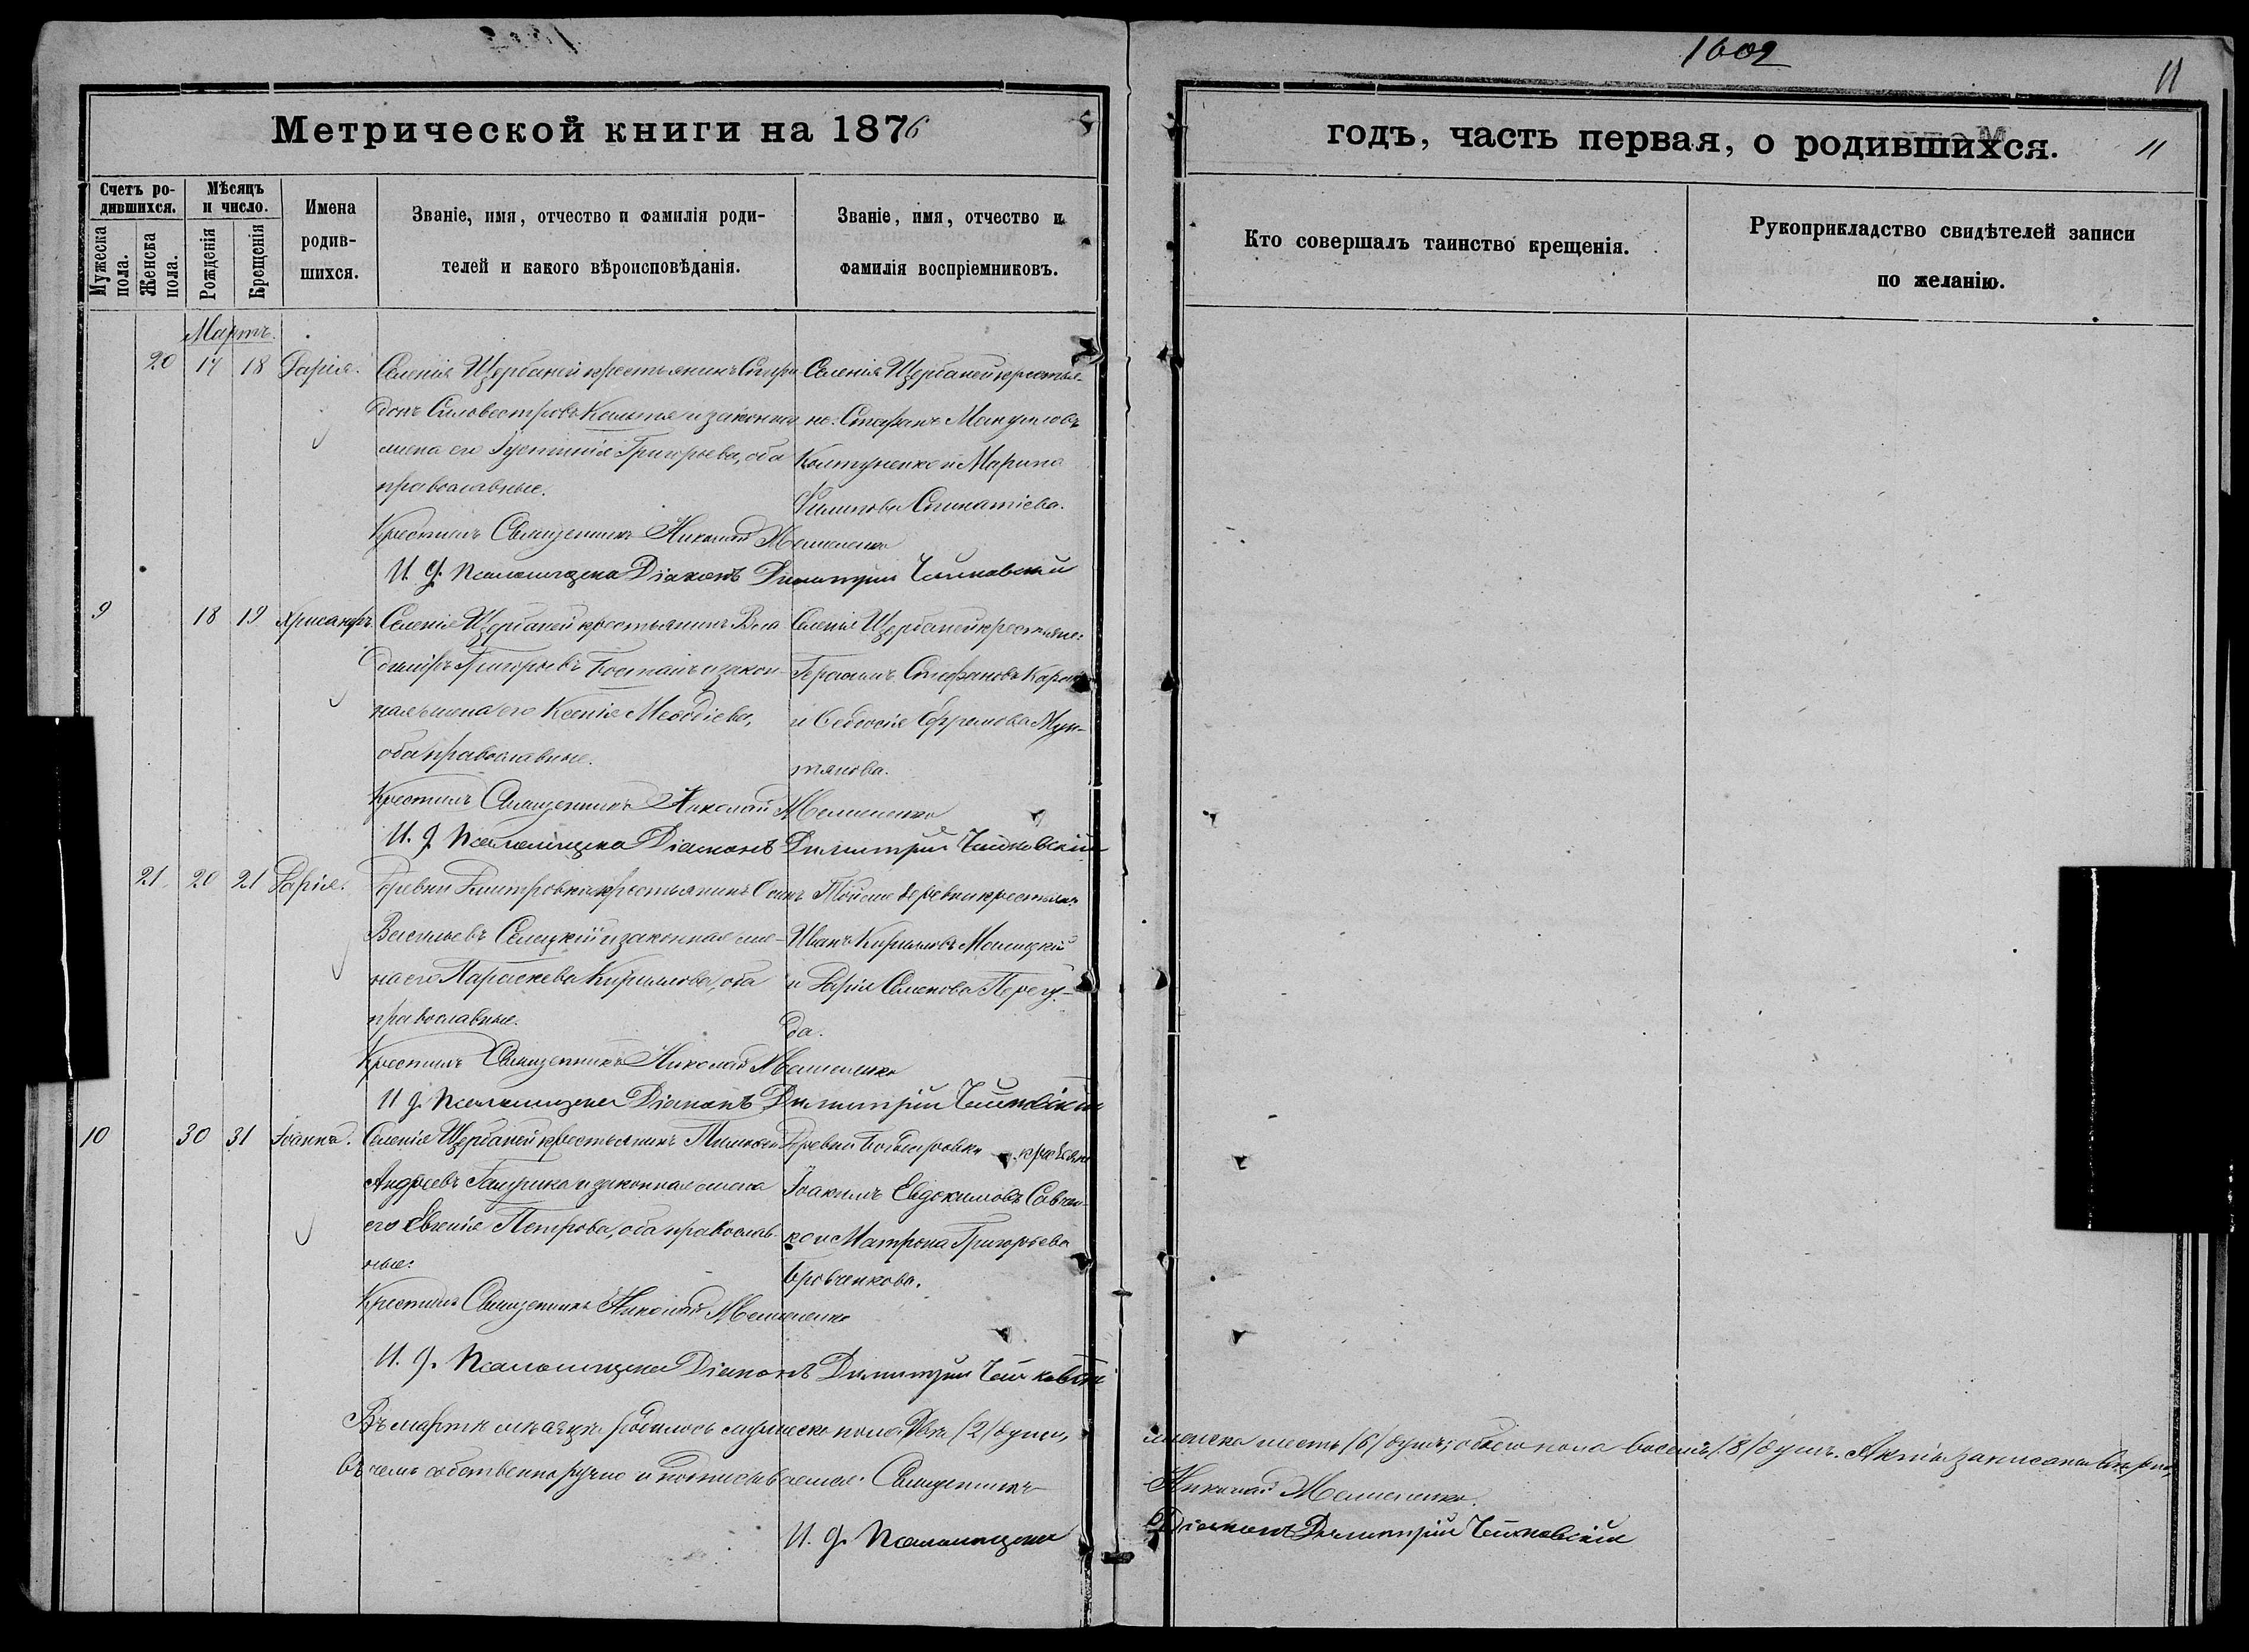 1602
11
Метрической книги на 1876
годъ, часть первая, о родившихся.
11
Счетъ ро-
дившихся.
Мужеска
пола.
Женска
пола.
Мѣсяцъ
и число.
Рожденія
Крещенія
Имена
родив-
шихся.
Званіе, имя, отчество и фамилія роди-
телей и какого вѣроисповѣданія.
Званіе, имя, отчество и
фамилія воспріемниковъ.
Кто совершалъ таинство крещенія.
Рукоприкладство свидѣтелей записи
по желанію.
Мартъ.
20 17 18 Дарія.
Селенія Щербаней крестьянинъ Спири
донъ Силовестровъ и законная
жена его Густинія Григорьева, оба
православные.
Селенія Щербаней крестья-
не: Стефанъ Мануиловъ
Колтуненко и Марина
Филипова
Крестилъ Священникъ Николай
И. д. Псаломщика Діаконъ Димитрій
9 18 19 Хрисанфъ
Селенія Щербаней крестьянинъ Вла
диміръ Григорьевъ и закон-
ная жена его Ксенія Меѳодіева,
оба православные.
Селенія Щербаней крестьяне:
Герасимъ Стефановъ
и Ѳеодосія Ефремова Мун-
тянова.
Крестилъ Священникъ Николай
И. д. Псаломщика Діаконъ Димитрій
21 20 21 Дарія.
Деревни Дмитровки крестьянинъ Осипъ
Васильевъ Селецкій и законная же-
на его Параскева Кирилова, оба
православные.
Той же деревни крестьяне
Иванъ Кириловъ
и Дарія Семенова Перегу-
да.
Крестилъ Священникъ Николай
И д. Псаломщика Діаконъ Димитрій
10 30 31 Іоаннъ.
Селенія Щербаней крестьянинъ Тимоѳей
Андреевъ и законная жена
его Евгенія Петрова, оба православ-
ные:
Деревни крестьяне
Іоакимъ Евдокимовъ Савчен-
ко и Матрона Григорьева
Крестилъ Священникъ Николай
И. д. Псаломщика Діаконъ Димитрій
Въ мартѣ мѣсяцѣ родилось мужеска пола два /2/ души,
женска шесть /6/ душъ, обоего пола восемь /8/ душъ. Акты записаны вѣрно,
въ чемъ собственноручно и подписываемся: Священникъ
Николай
И. д. Псаломщика
Діаконъ Димитрій